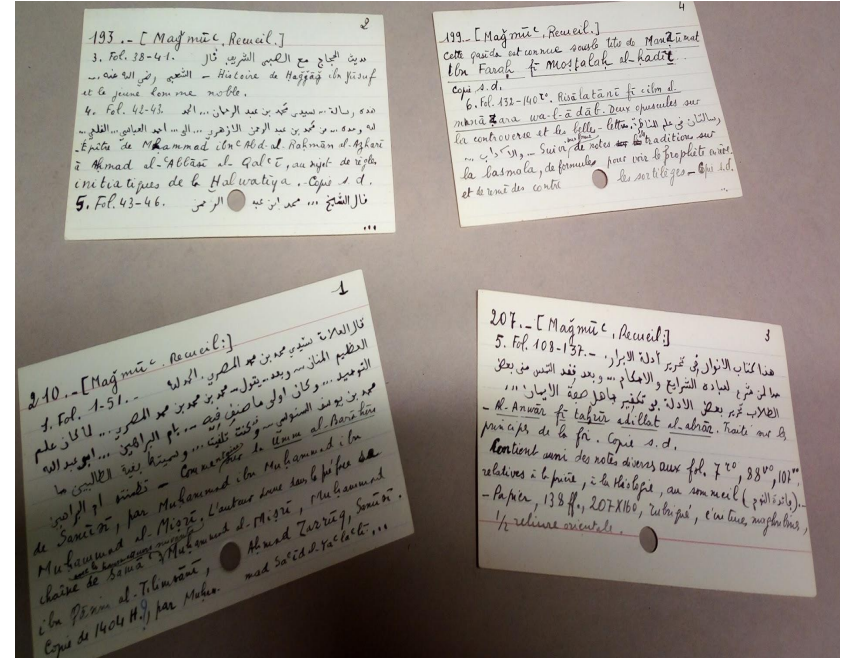 2
193.- [Maǧmūᶜ. Recueil.]
3. Fol. 38-41. حديث الحجاج مع الصبي الشريف قال
الشعبي رضي الله عنه ... - Histoire de Ḥaǧǧāǧ ibn Yūsuf
et le jeune homme noble.
4. Fol. 42-43. هذه رسالة ... سيدي محمد بن عبد الرحمان ... الحمد
لله وحده ... من محمد بن عبد الرحمن الازهري ... الى ... احمد العباسي ...
- Épître de Muḥammad ibn ᶜAbd-al-Raḥmān al-Azharī
à Aḥmad al-ᶜAbbāsī al-Qalᶜī, au sujet de règles
initiatiques de la Ḫalwatīya. - Copie s. d.
5. Fol. 43-46. قال الشيخ ... محمد ابن عبد الرحمن
...
4
199.- [Maǧmūᶜ. Recueil.]
Cette qaṣīda est connue sous le titre de Manẓūmat
Ibn Faraḥ fī moṣṭalaḥ al-ḥadīṯ
Copie s. d.
6. Fol. 132-140 rᵒ. Risālatānī fī ᶜilm al-
munāẓara wa-l-ādāb. Deux opuscules sur
la controverse et les belles-lettres. رسالتان في علم المناظرة
والآداب ... - Suivi de notes traditions sur
la basmala, de formules pour voir le prophète
et de remèdes contre les sortilèges - Copie s.d.
1
210.- [Maǧmūᶜ. Recueil.]
1. Fol. 1-51. - قال العلامة سيدي محمد بن محمد المصري. الحمد لله
العظيم المنان ... وبعد ... يقول ... محمد بن محمد بن محمد المصري ... لما كان علم
التوحيد ... وكان اولى ما صنف فيه ... ام البراهين ... ابو عبد الله
محمد بن يوسف السنوسي ... وسميتها بغية الطالبين
ام البراهين - Commentaire sur la Umm al-Barāhīn
de Sanūsī, par Muḥammad ibn Muḥammad ibn
Muḥammad al-Miṣrī. L'auteur donne dans la préface sa
chaîne de Muḥammad al-Miṣrī, Muḥammad
ibn al-Tilimsānī, Aḥmad Zarrūq, Sanūsī.
Copie de 1404 H., par Muḥam- mad Saᶜīd ...
3
207.- [Maǧmūᶜ. Recueil.]
5. Fol. 108-137. - هذا كتاب الانوار في تحرير أدلة الابرار.
حمدا لمن شرع لعباده الشرايع والاحكام ... وبعد فقد التمس مني بعض
الطلاب تحرير بعض الادلة في تكفير جاهل صفة الايمان ...
- Al-Anwār fī taḥrīr adillat al-abrār. Traité sur les
principes de la foi. Copie s. d.
Contient aussi des notes diverses aux fol. 7 rᵒ, 88 vᵒ, 107 vᵒ,
relatives à la prière, à la théologie, au sommeil (فائدة النوم). -
- Papier, 138 ff., 207X160, rubriqué, écritures maghrébines,
1/2 reliure orientale.